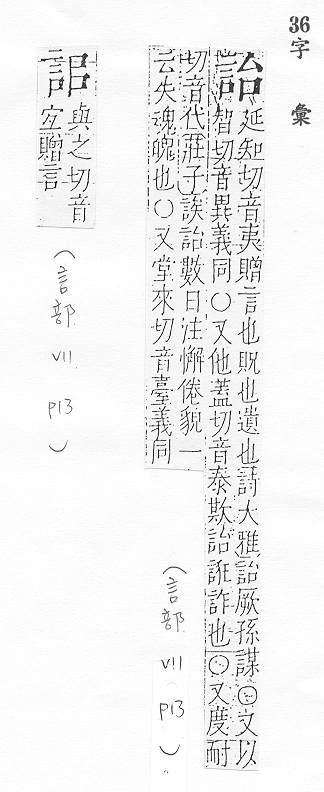 36字彙
詒延知切音夷贈言也貺也遺也詩大雅詒厥孫謀〇又以
智切音異義同〇又他蓋切音泰欺詒誑詐也〇又度耐
切音代莊子誒詒數日注懈倦貌一
云失魂魄也〇又堂來切音臺義同
(言部 VII P13)
𧥮與之切音
宧贈言
(言部 VII P13)